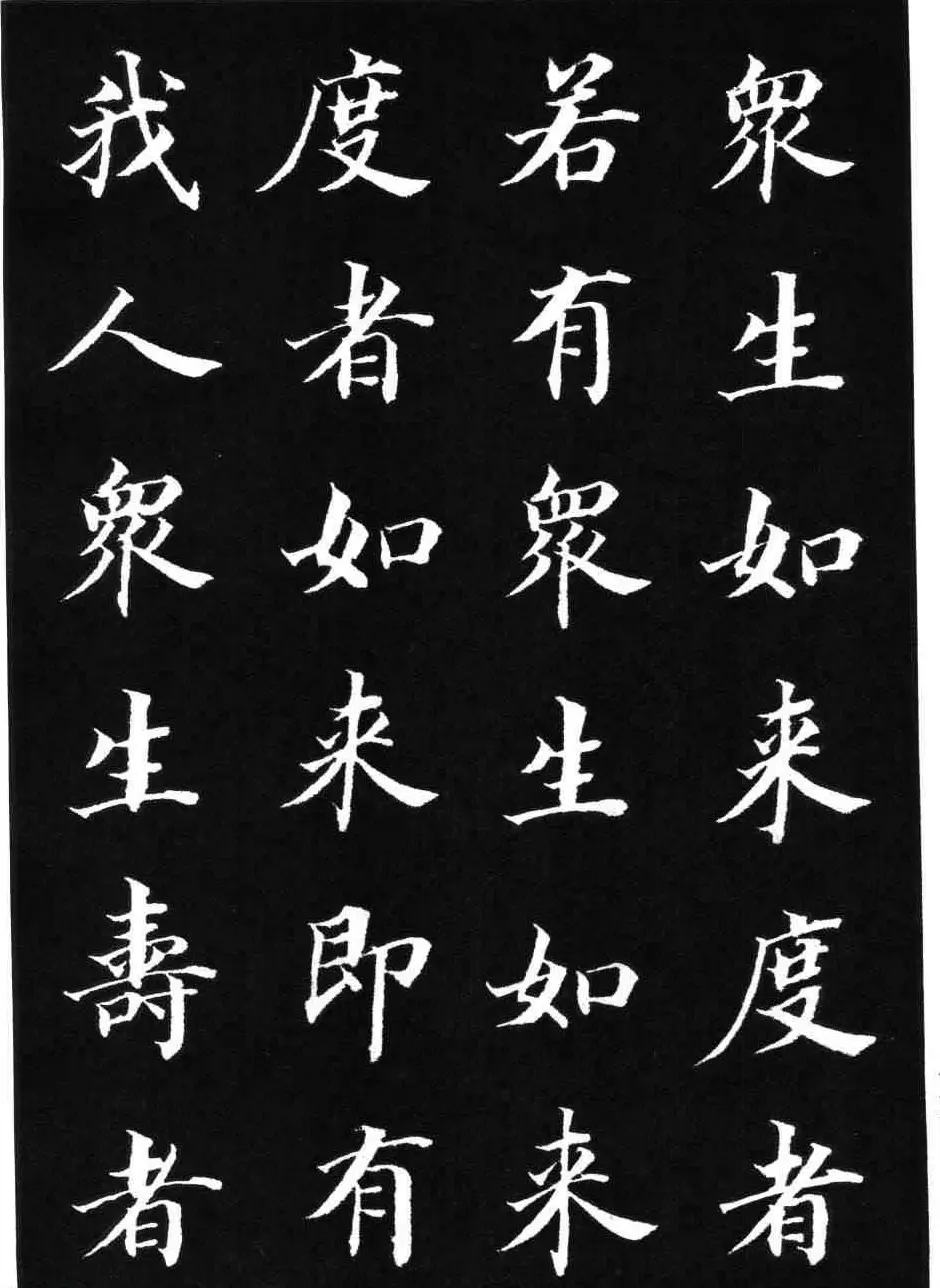 眾生如来度者
若有眾生如来
度者如来即有
我人眾生壽者